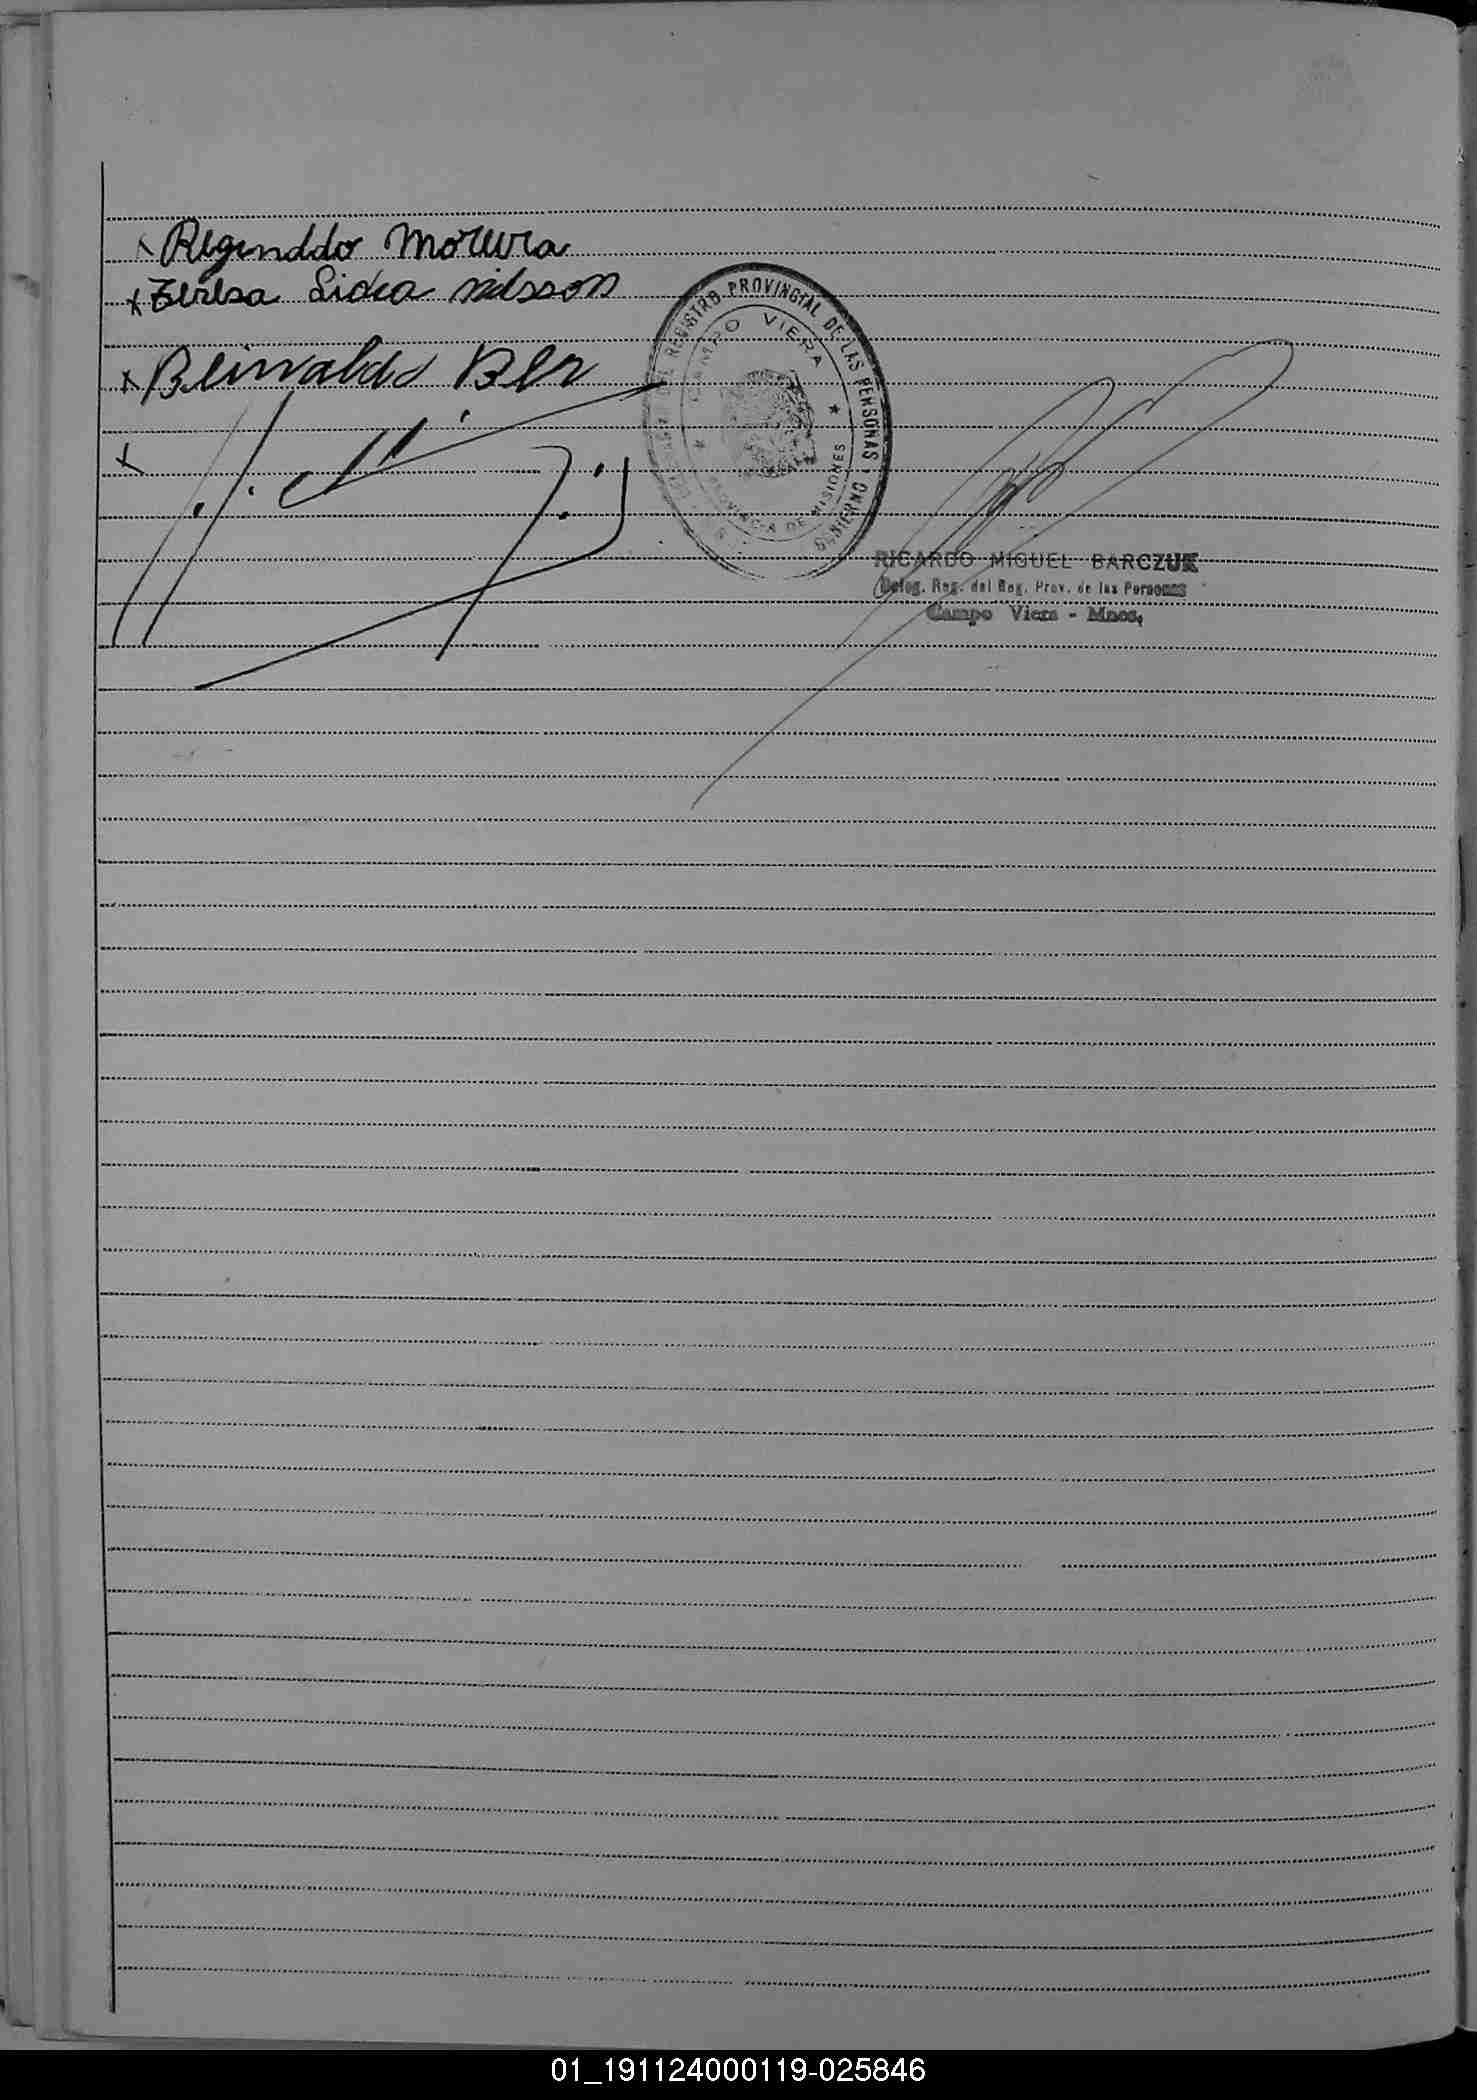 x Reginddo Moreira
x Teresa Lidia nilsson
x Reinvaldo Ber
x
REGISTRO PROVINCIAL DE LAS PERSONAS
GOBIERNO
CAMPO VIERA
PROVINCIA DE MISIONES
RICARDO MIGUEL BARCZUK
Deleg. Reg. del Reg. Prov. de las Personas
Campo Viera - Mnes.
01_191124000119-025846